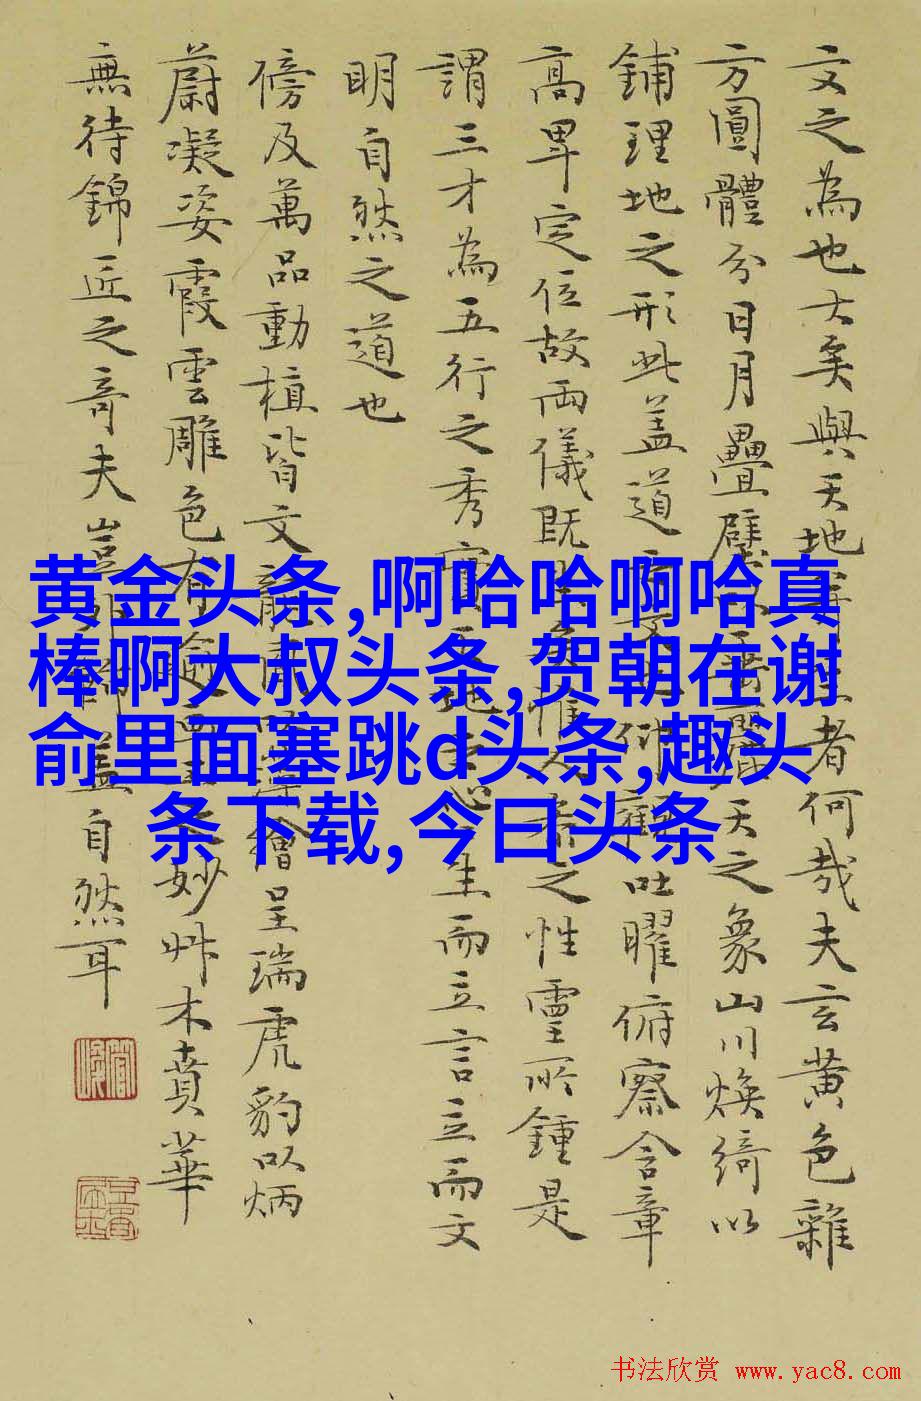 文之為也大矣與天地生者何哉夫玄黃色雜
方圓體分日月疊璧垂麗天之象山川煥綺以
鋪理地之形此盖道吐曜俯察含章
高卑定位故兩儀既惟人之性靈所鍾是
謂三才為五行之秀實生而立言立而文
明自然之道也
傍及萬品動植皆文龍繪呈瑞虎豹以炳
蔚凝姿霞雲雕色有妙艸木賁華
無待錦匠之奇夫豈盖自然耳
黄金头条,啊哈哈啊哈真
棒啊大叔头条,贺朝在谢
俞里面塞跳d头条,趣头
条下载,今日头条
书法欣赏 www.yac8.com